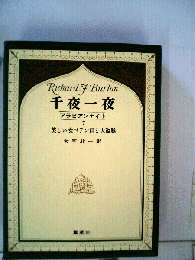 Richard F. Burton
千夜一夜
アラビアンナイト
7
美しの女ペテン師と大
大場正史 訳